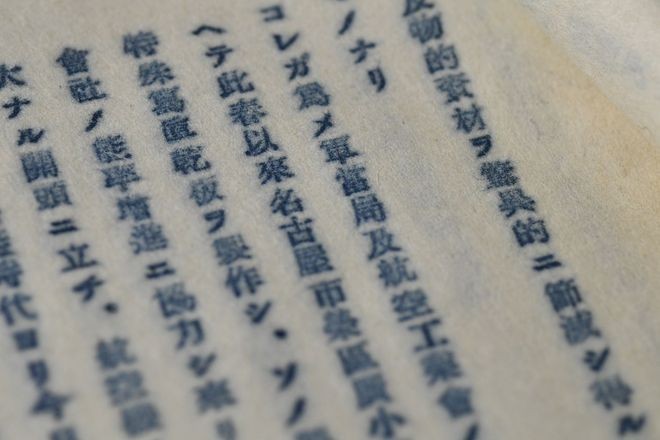 的素材ヲ驚異的ニ節減シ得ル
モノナリ
コレガ為メ軍當局及航空工業會ノ
ヘテ此春以來名古屋市榮區
特殊寫眞乾板ヲ製作シ、ソノ
會社ノ能率增進ニ協力シ來リ
大ナル關頭ニ立チ、航空
時代ヨリ今